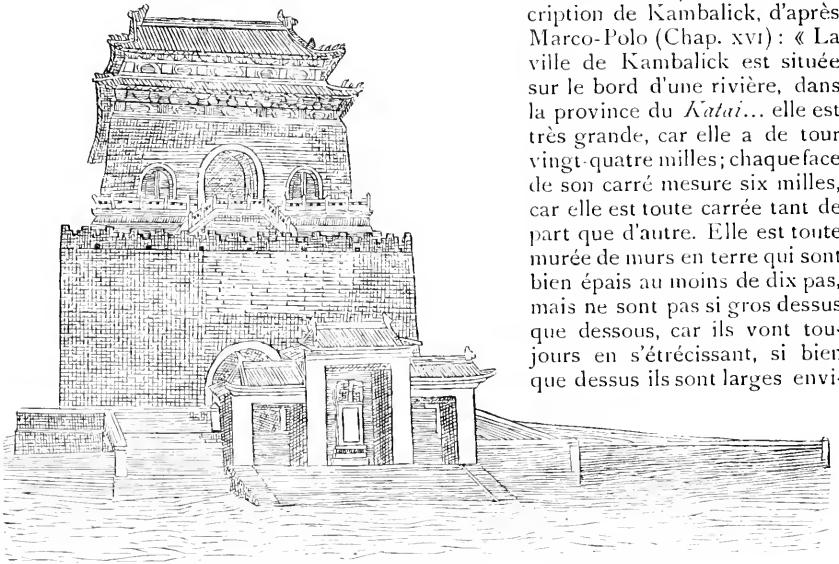 cription de Kambalick, d'après
Marco-Polo (Chap. XVI) : « La
ville de Kambalick est située
sur le bord d'une rivière, dans
la province du Katai... elle est
très grande, car elle a de tour
vingt-quatre milles; chaque face
de son carré mesure six milles,
car elle est toute carrée tant de
part que d'autre. Elle est toute
murée de murs en terre qui sont
bien épais au moins de dix pas,
mais ne sont pas si gros dessus
que dessous, car ils vont tou-
jours en s'étrécissant, si bien
que dessus ils sont larges envi-